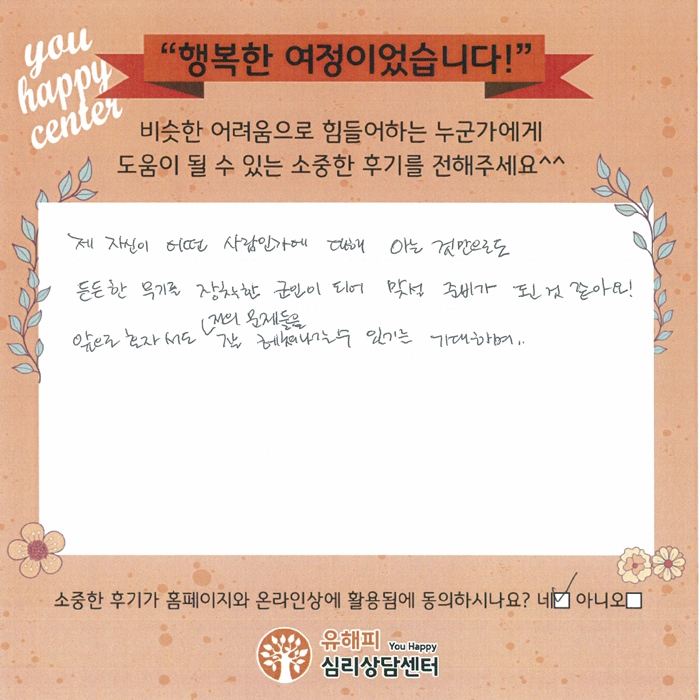 you
happy
center
“행복한 여정이었습니다!”
비슷한 어려움으로 힘들어하는 누군가에게
도움이 될 수 있는 소중한 후기를 전해주세요^^
제 자신이 어떤 사람인가에 대해 아는 것만으로도
든든한 무기를 장착한 군인이 되어 맞설 준비가 된 것 같아요!
저의 문제들을
앞으로 혼자서도 잘 헤쳐나갈 수 있기를 기대하며..
소중한 후기가 홈페이지와 온라인상에 활용됨에 동의하시나요? 네 아니오
유해피 You Happy
심리상담센터